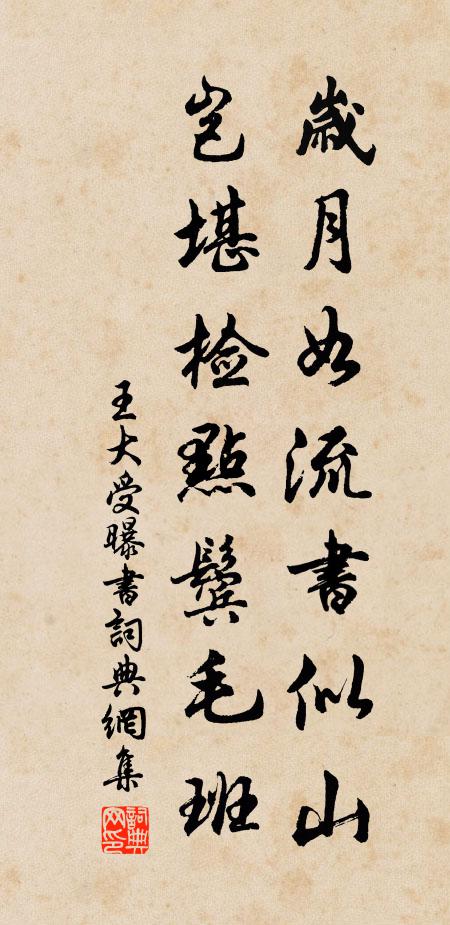 歲月如流書似山
豈堪檢點鬢毛班
王大受曝書詞典網集
詞典網印